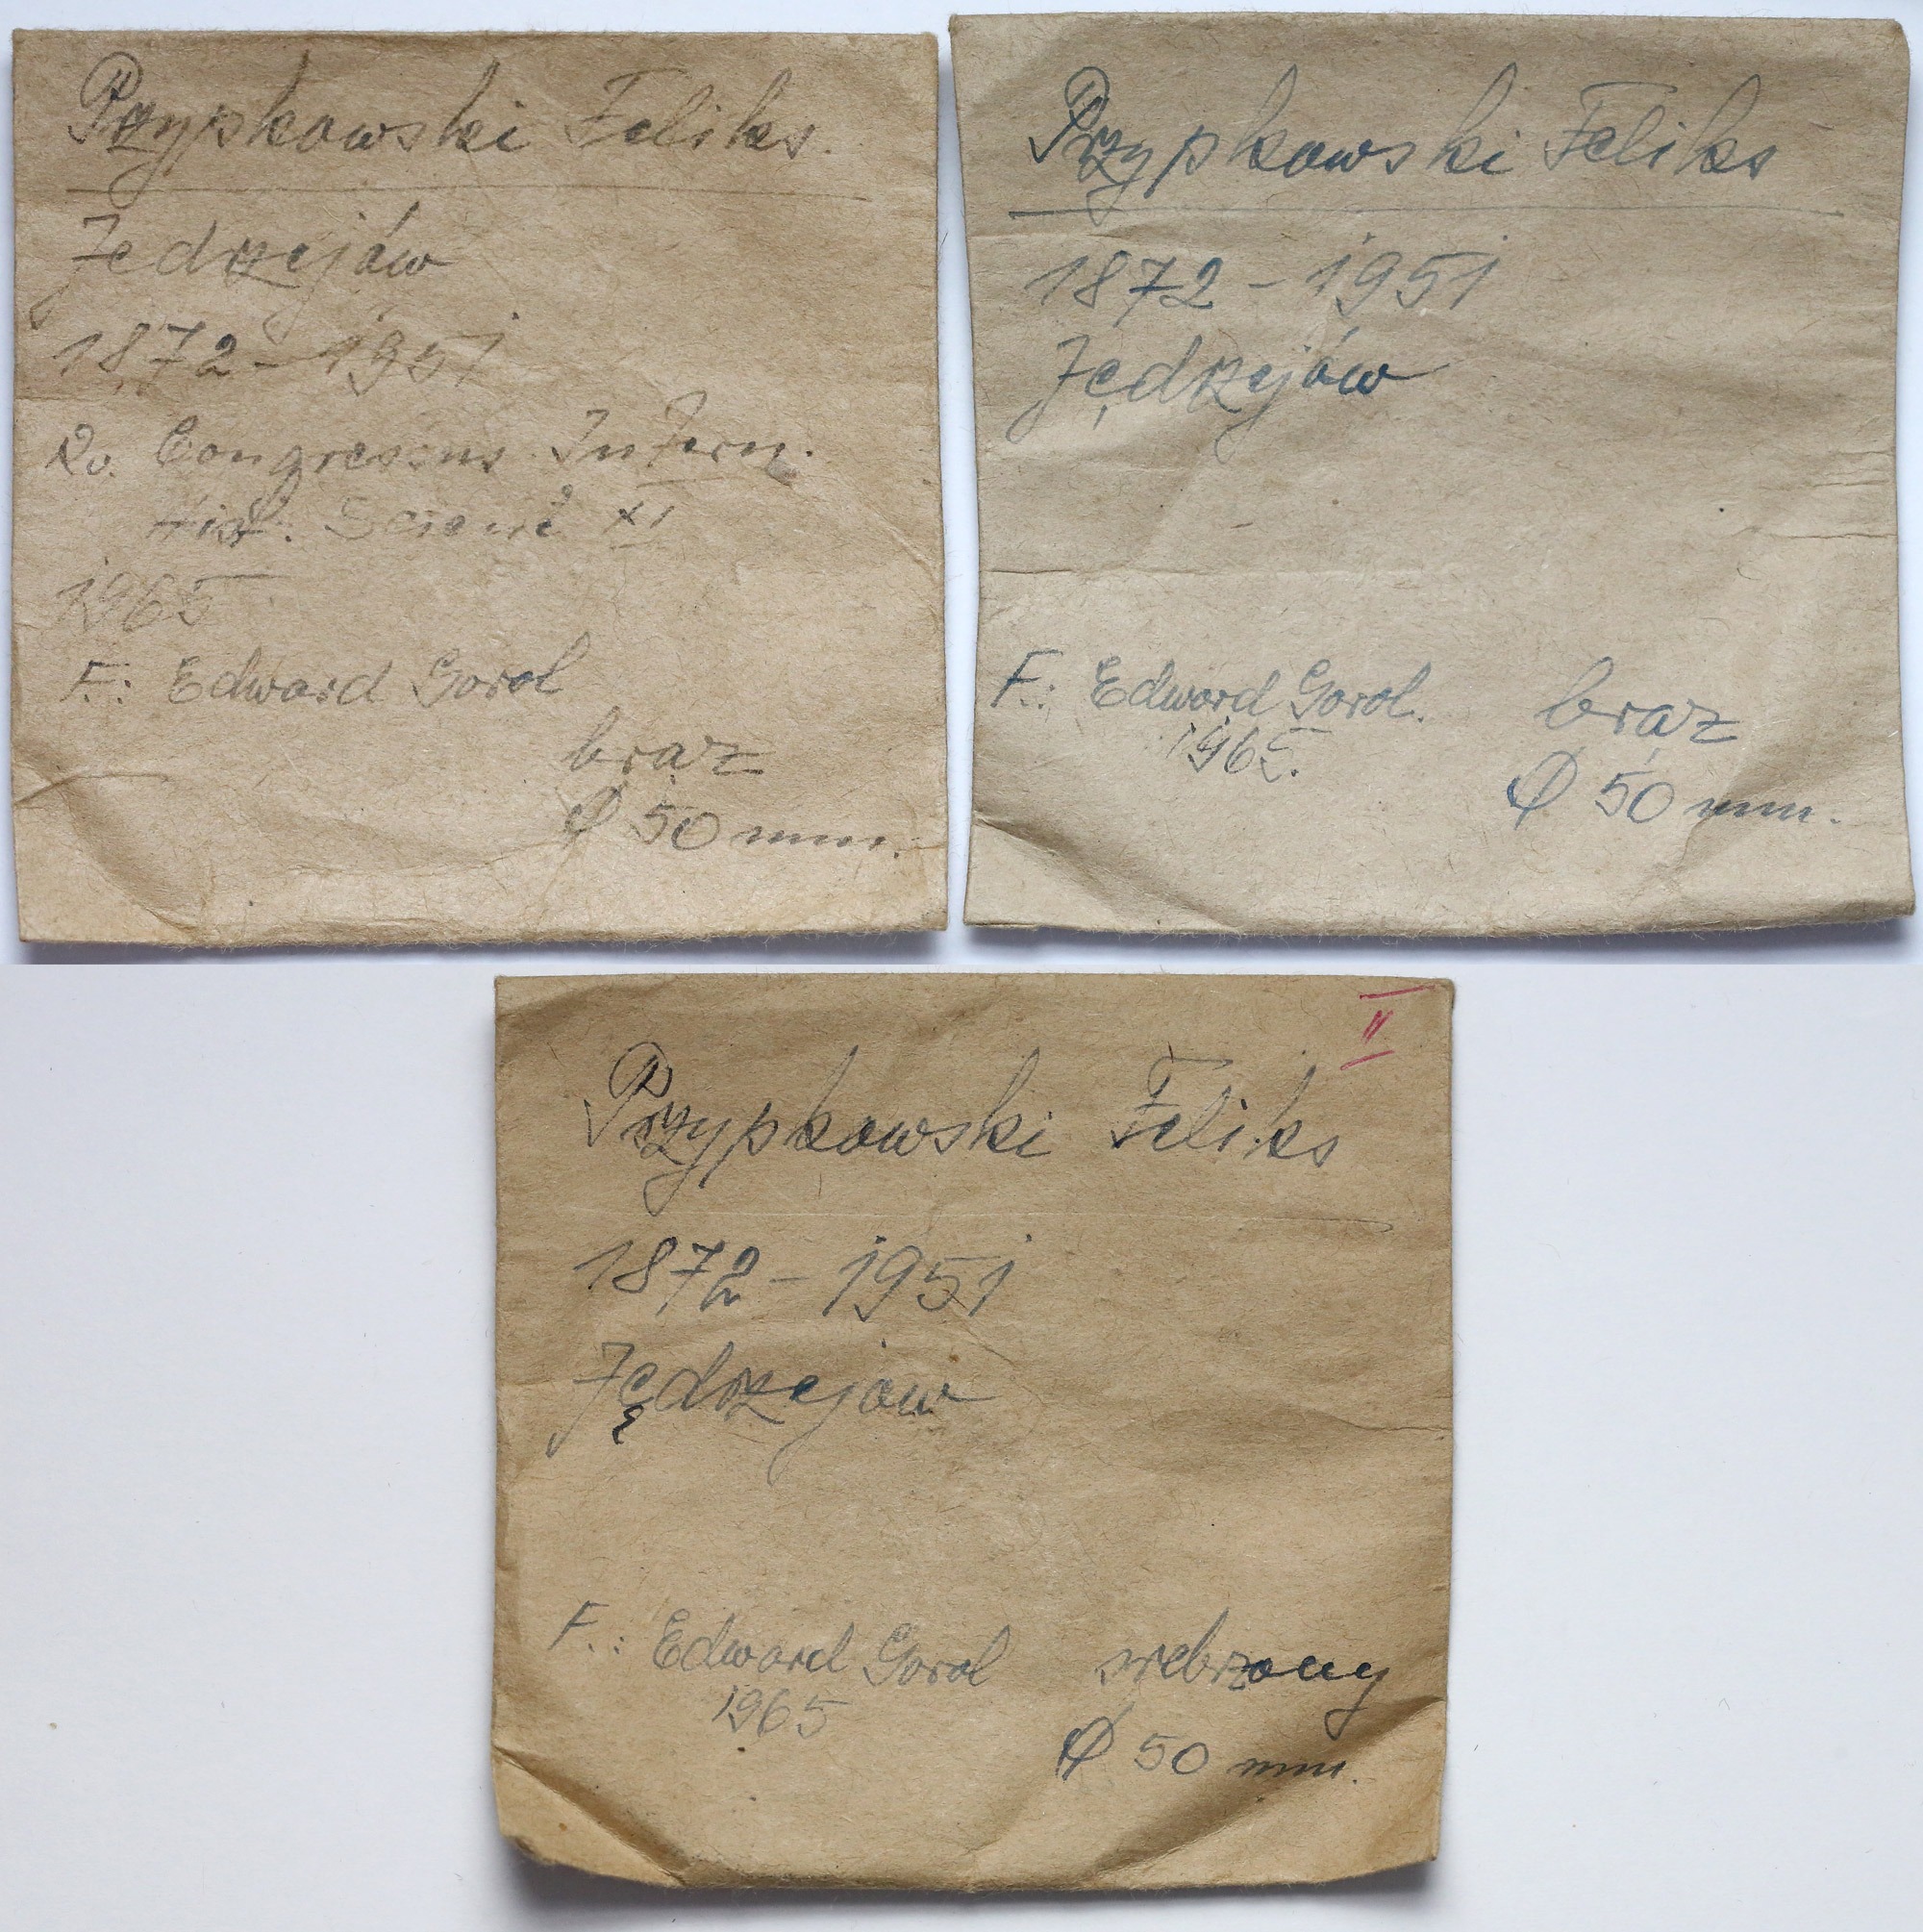 Przypkowski Feliks.
Jedrzejów
1872 - 1951
Rv. Congressus Intern.
Hist. Scient XI
1965
F.: Edward Gorol
brąz
Ø 50 mm.
Przypkowski Feliks
1872 - 1951
Jędrzejów
F.: Edward Gorol.
1965.
brąz
Ø 50 mm.
II
Przypkowski Feliks
1872 - 1951
Jędrzejów
F.: Edward Gorol
1965
srebrzony
Ø 50 mm.